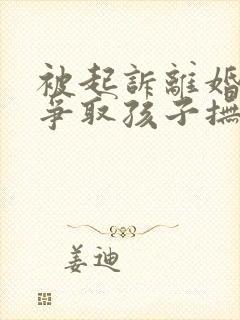 被起訴離婚
爭取孩子撫
姜迪